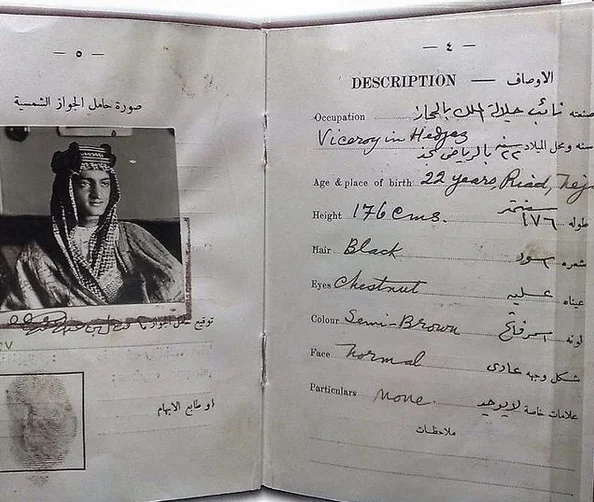 — ٤ —
DESCRIPTION — الاوصاف
Occupation نائب جلالة الملك بالحجاز صنعته
Viceroy in Hedjaz
٢٢ سنه بالرياض نجد سنه ومحل الميلاد
Age & place of birth 22 years, Riad, Nejd
Height 176 cms. ١٧٦ سنتمتر طوله
Hair Black اسود شعره
Eyes Chestnut عسليه عيناه
Colour Semi-Brown اسمر فاتح لونه
Face Normal عادى شكل وجهه
Particulars none. لا يوجد علامات خاصة
ملاحظات
— ٥ —
صورة حامل الجواز الشمسية
توقيع حامل الجواز
او طابع الابهام